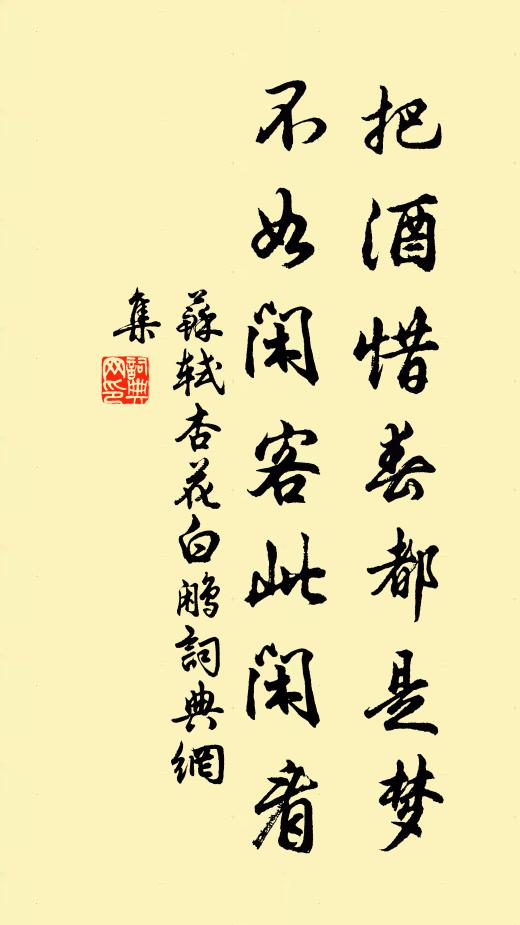 把酒惜春都是梦
不如闲客此闲看
蘇軾杏花白鷴詞典網
集
詞典
网印